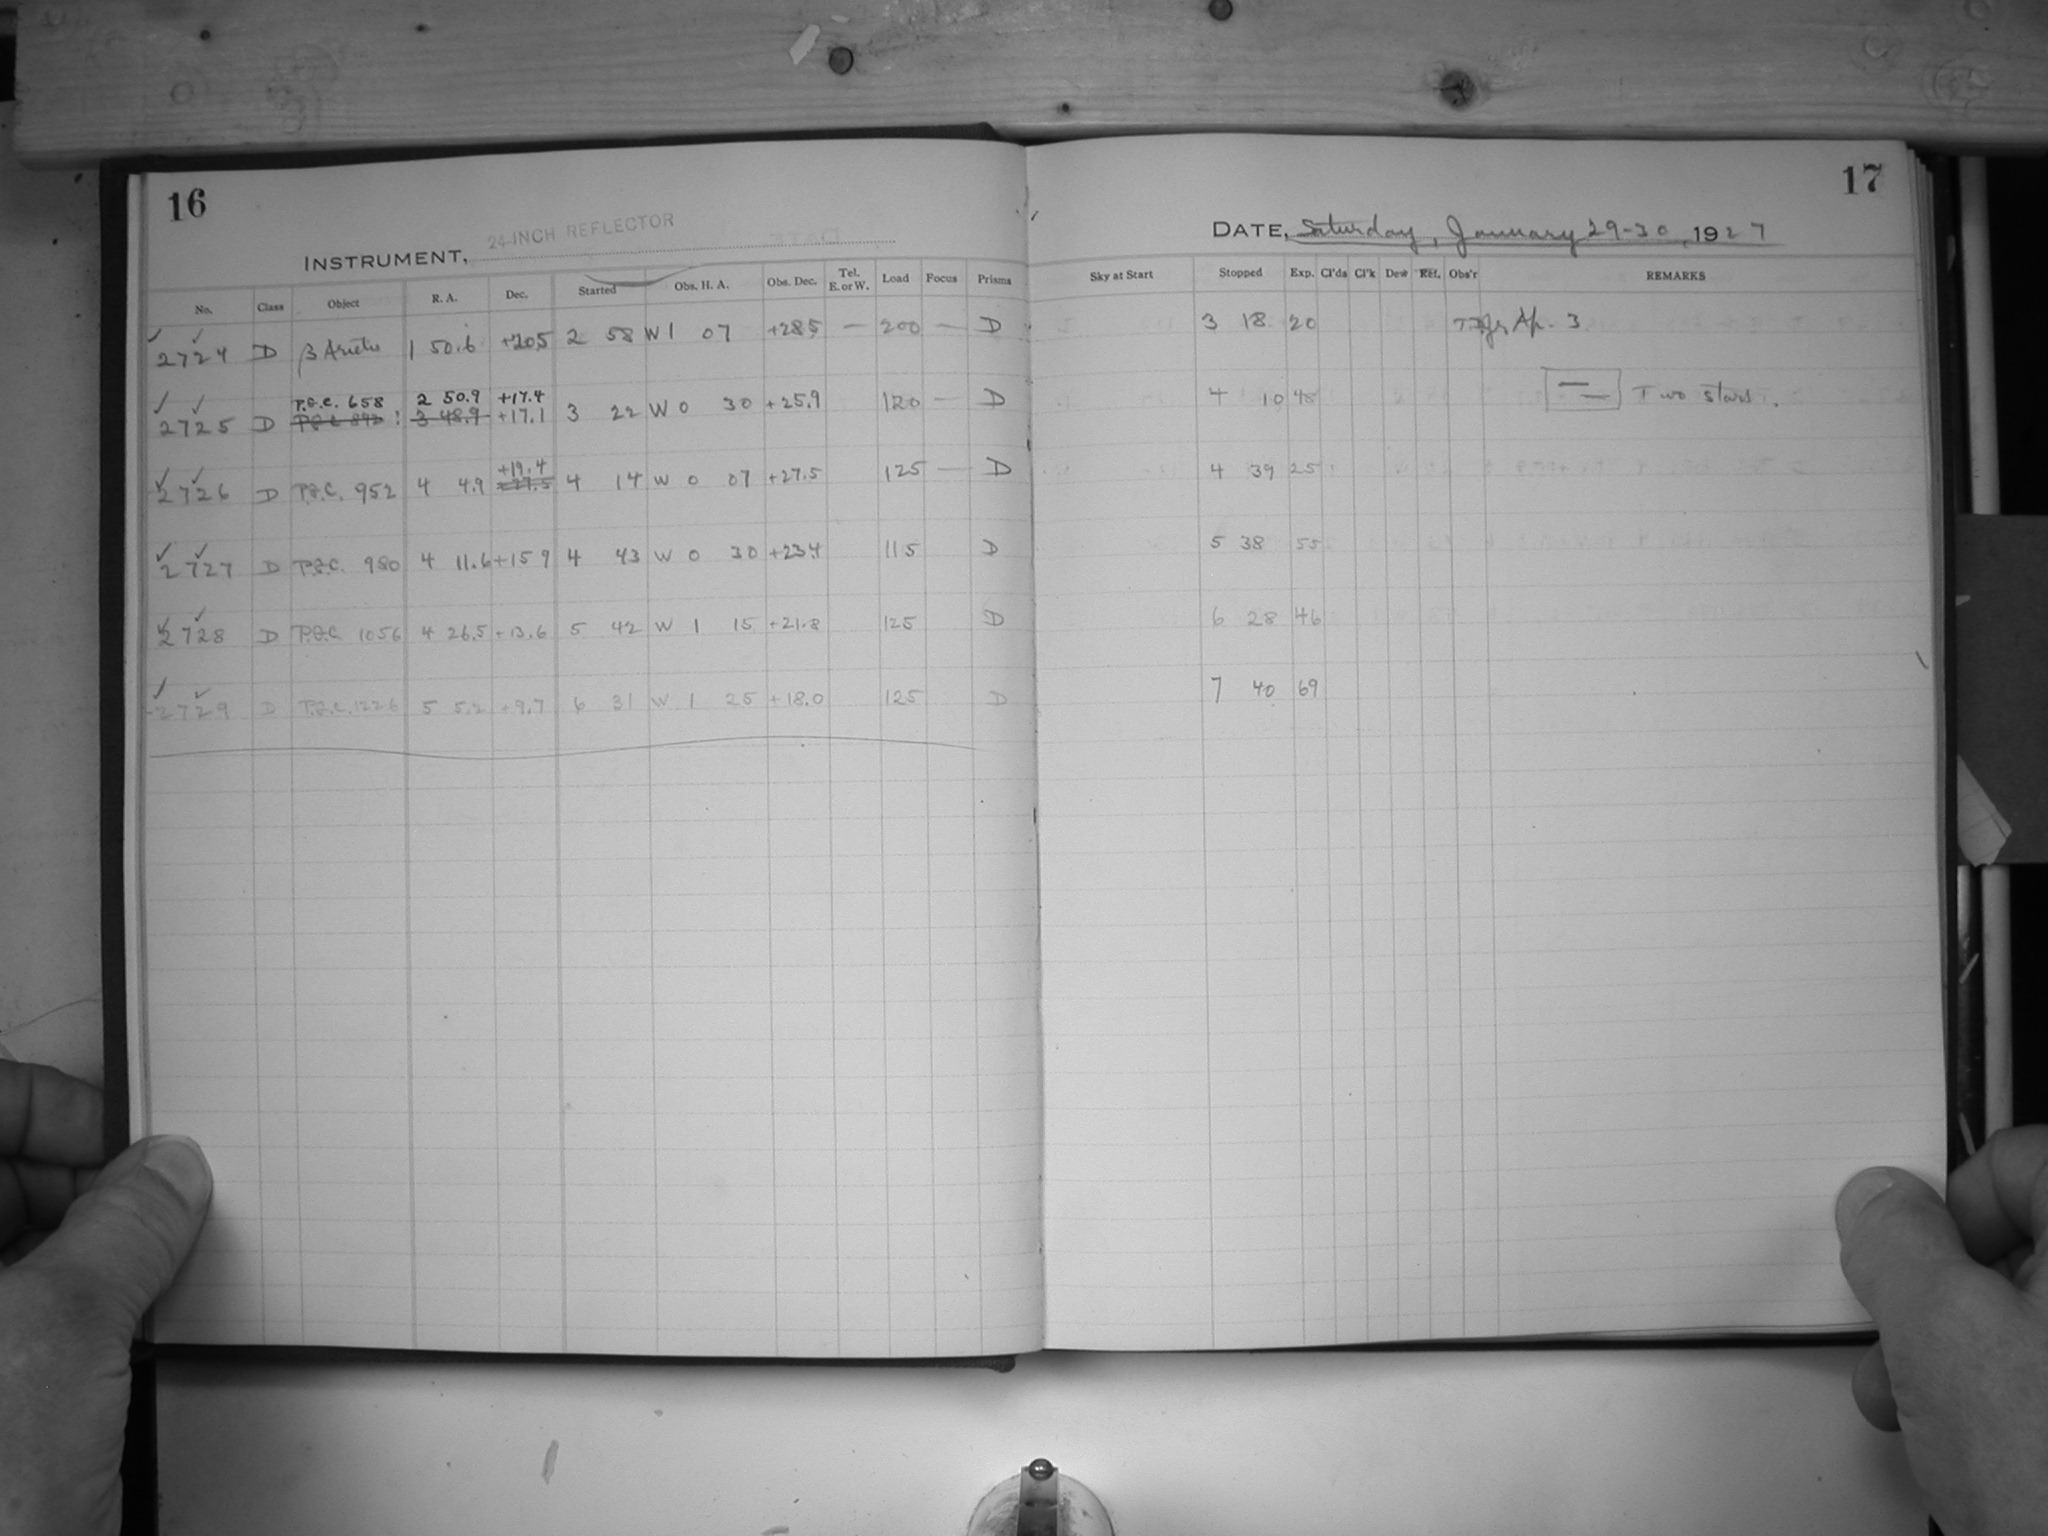 16
INSTRUMENT, 24-INCH REFLECTOR
No. Class Object R. A. Dec. Started Obs. H. A. Obs. Dec. Tel. E. or W. Load Focus Prisms
2724 D β Arietis 1 50.6 +20.5 2 58 W 1 07 +28.5 — 200 — D
P.G.C. 658 2 50.9 +17.4
2725 D P.G.C. 892 : 3 48.9 +17.1 3 22 W 0 30 +25.9 120 — D
+19.4
2726 D P.G.C. 952 4 4.9 +27.5 4 14 W 0 07 +27.5 125 — D
2727 D P.G.C. 980 4 11.6 +15 9 4 43 W 0 30 +23.4 115 D
2728 D P.G.C. 1056 4 26.5 +13.6 5 42 W 1 15 +21.8 125 D
2729 D P.G.C. 1226 5 5.2 +9.7 6 31 W 1 25 +18.0 125 D
17
DATE, Saturday, January 29-30, 1927
Sky at Start Stopped Exp. Cl'ds Cl'k Dew Ref. Obs'r REMARKS
3 18 20 Ap. 3
4 10 48 Two stars.
4 39 25
5 38 55
6 28 46
7 40 69